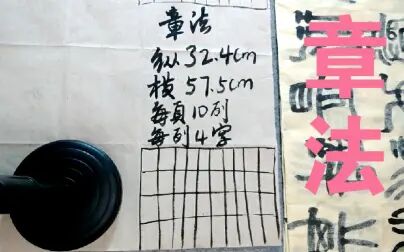 章法
纵32.4cm
横57.5cm
每頁10列
每列4字
章法
帖